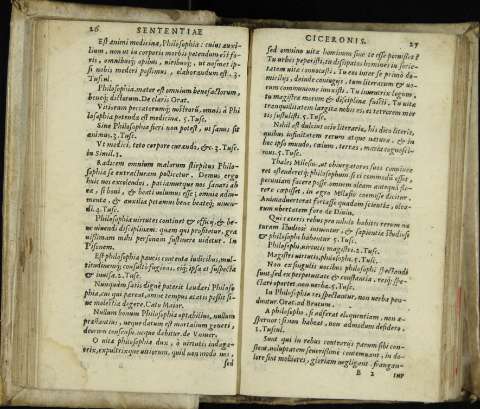 26 SENTENTIAE
Est animi medicina, Philosophia: cuius auxi-
lium, non ut in corporis morbis petendum est fo-
ris, omnibusq; opibus, uiribusq;, ut nosmet ip-
si nobis mederi possimus, elaborandum est. 3.
Tuscul.
Philosophia mater est omnium benefactorum,
beneq; dictorum. De claris Orat.
Vitiorum peccatorumq; nostrorū, omnis à Phi
losophia petenda est medicina. 5. Tusc.
Sine Philosophia fieri non potest, ut sanus sit
animus. 3. Tusc.
Vt medici, toto corpore curando, &c. 3. Tusc.
in Simil. 3.
Radicem omnium malorum stirpitus Philo-
sophia se extracturam pollicetur. Demus ergo
huic nos excolendos, patiamurque nos sanari ab
ea, si boni, & beati uolumus esse; omnia adiu-
menta, & auxilia petamus bene beateq; uiuen-
di. 4. Tusc.
Philosophia uirtutes continet & officij, & be-
ne uiuendi disciplinam: quam qui profitetur, gra
uissimam mihi personam sustinere uidetur. In
Pisonem.
Est philosophia paucis contenta iudicibus, mul-
titudinemq; consultò fugiens, eiq; ipsa et suspecta
& inuisa. 2. Tusc.
Nunquam satis dignè poterit laudari Philoso
phia, cui qui pareat, omne tempus aetatis possit si-
ne molestia degere. Cato Maior.
Nullum bonum Philosophia optabilius, nullum
praestantius, neque datum est mortalium generi,
deorum concessu, neque dabitur. De Vniuer.
O uita philosophia dux, ô uirtutis indaga-
trix, expultrixque uitiorum, quid non modo nos,
sed
CICERONIS. 27
sed omnino uita hominum sine te esse potuisset?
Tu urbes peperisti, tu dissipatos homines in socie-
tatem uitae conuocasti. Tu eos inter se primò do-
micilijs, deinde coniugijs, tum literarum & uo-
cum communione iunxisti. Tu inuentrix legum,
tu magistra morum & disciplinae fuisti. Tu uitae
tranquillitatem largita nobis es, et terrorem mor
tis sustulisti. 5. Tusc.
Nihil est dulcius ocio literario, his dico literis,
quibus infinitatem rerum atque naturae, & in
hoc ipso mundo, caelum, terras, maria cognosci-
mus. 5. Tusc.
Thales Milesius, ut obiurgatores suos conuince
ret ostenderetq; philosophum si ei commodū esset,
pecuniam facere posse: omnem oleam antequā flo-
rere coepisset, in agro Milesio coemisse dicitur,
Animaduerterat fortasse quadam scientia, olea-
rum ubertatem fore. De Diuin.
Qui caeteris rebus pro nihilo habitis rerum na
turam studiosè intuentur, & sapientiae studiosi
& philosophi habentur 5. Tusc.
Philosophi, uirtutis magistri. 2. Tusc.
Magistra uirtutis, philosophia. 5. Tusc.
Non ex singulis uocibus philosophi spectandi
sunt, sed ex perpetuitate & constantia, resq; spe-
ctari oportet, non uerba. 5. Tusc.
In Philosophia res spectantur, non uerba pen-
duntur. Orat. ad Brutum.
A philosopho, si adferat eloquentiam, non a-
spernor: si non habeat, non admodum desidero.
1. Tuscul.
Sunt qui in rebus contrarijs parum sibi con-
stent, uoluptatem seuerissimè contemnant, in do-
lore sint molliores, gloriam negligant, frangan-
B 2 tur